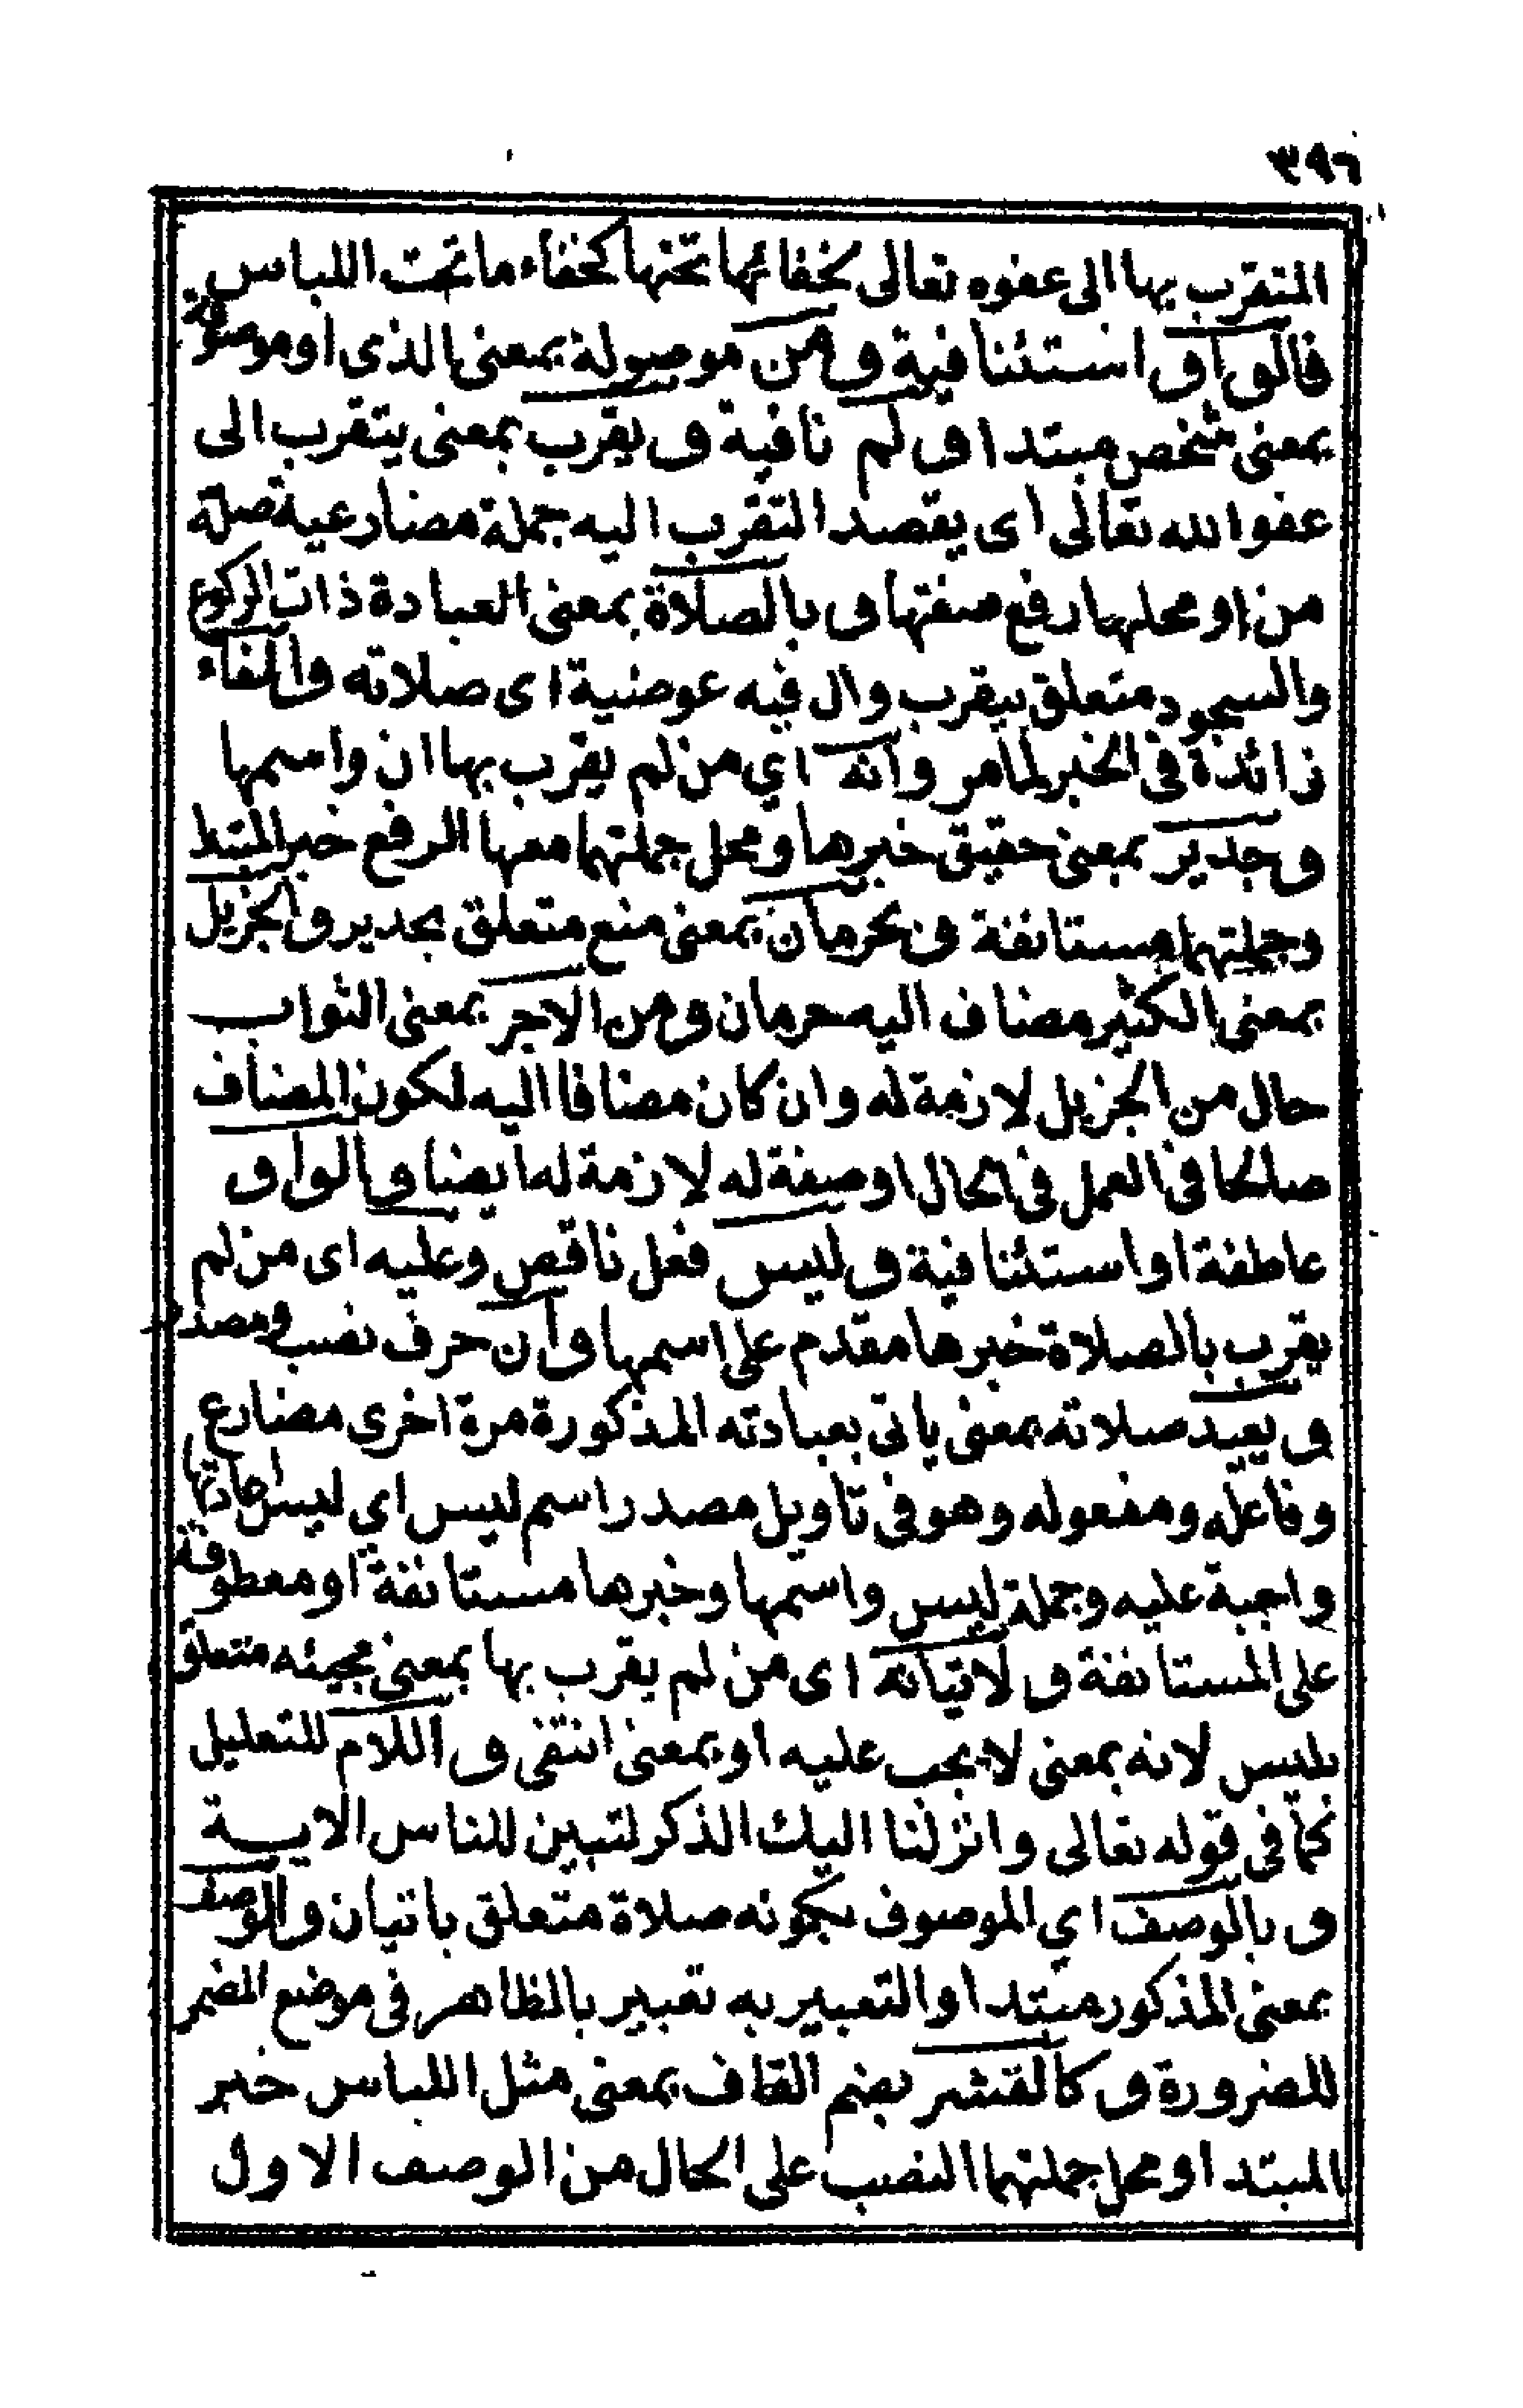 ٣٩٦
المتقرب بها الى عفوه تعالى بخفائها تحتها كخفاء ما تحت اللباس
فالواو استئنافية ومن موصولة بمعنى الذى او موصوفة
بمعنى شخص مبتدا ولم نافية ويقرب بمعنى يتقرب الى
عفو الله تعالى اى يقصد التقرب اليه جملة مضارعية صلة
من او محلها رفع صفتها وبالصلاة بمعنى العبادة ذات الركوع
والسجود متعلق بيقرب وال فيه عوضية اى صلاته والفاء
زائدة فى الخبر لما مر وانه اي من لم يقرب بها ان واسمها
وجدير بمعنى حقيق خبرها ومحل جملتهما معها الرفع خبر المبتدا
وجملتهما مستانفة وبحرمان بمعنى منع متعلق بجدير والجزيل
بمعنى الكثير مضاف اليه حرمان ومن الاجر بمعنى الثواب
حال من الجزيل لازمة له وان كان مضافا اليه لكون المضاف
صالحا فى العمل فى الحال او صفة له لازمة له ايضا والواو
عاطفة او استئنافية وليس فعل ناقص وعليه اى من لم
يقرب بالصلاة خبرها مقدم على اسمها وان حرف نصب ومصدر
ويعيد صلاته بمعنى ياتى بعبادته المذكورة مرة اخرى مضارع
وفاعله ومفعوله وهو فى تاويل مصدر اسم ليس اي ليس اعادتها
واجبة عليه وجملة ليس واسمها وخبرها مستانفة او معطوفة
على المستانفة ولاتيانه اى من لم يقرب بها بمعنى مجيئه متعلق
بليس لانه بمعنى لا يجب عليه او بمعنى انتفى واللام للتعليل
كما فى قوله تعالى وانزلنا اليك الذكر لتبين للناس الاية
وبالوصف اي الموصوف بكونه صلاة متعلق باتيان والوصف
بمعنى المذكور مبتدا والتعبير به تعبير بالظاهر فى موضع المضمر
للضرورة وكالقشر بضم القاف بمعنى مثل اللباس خبر
المبتدا ومحل جملتهما النصب على الحال من الوصف الاول